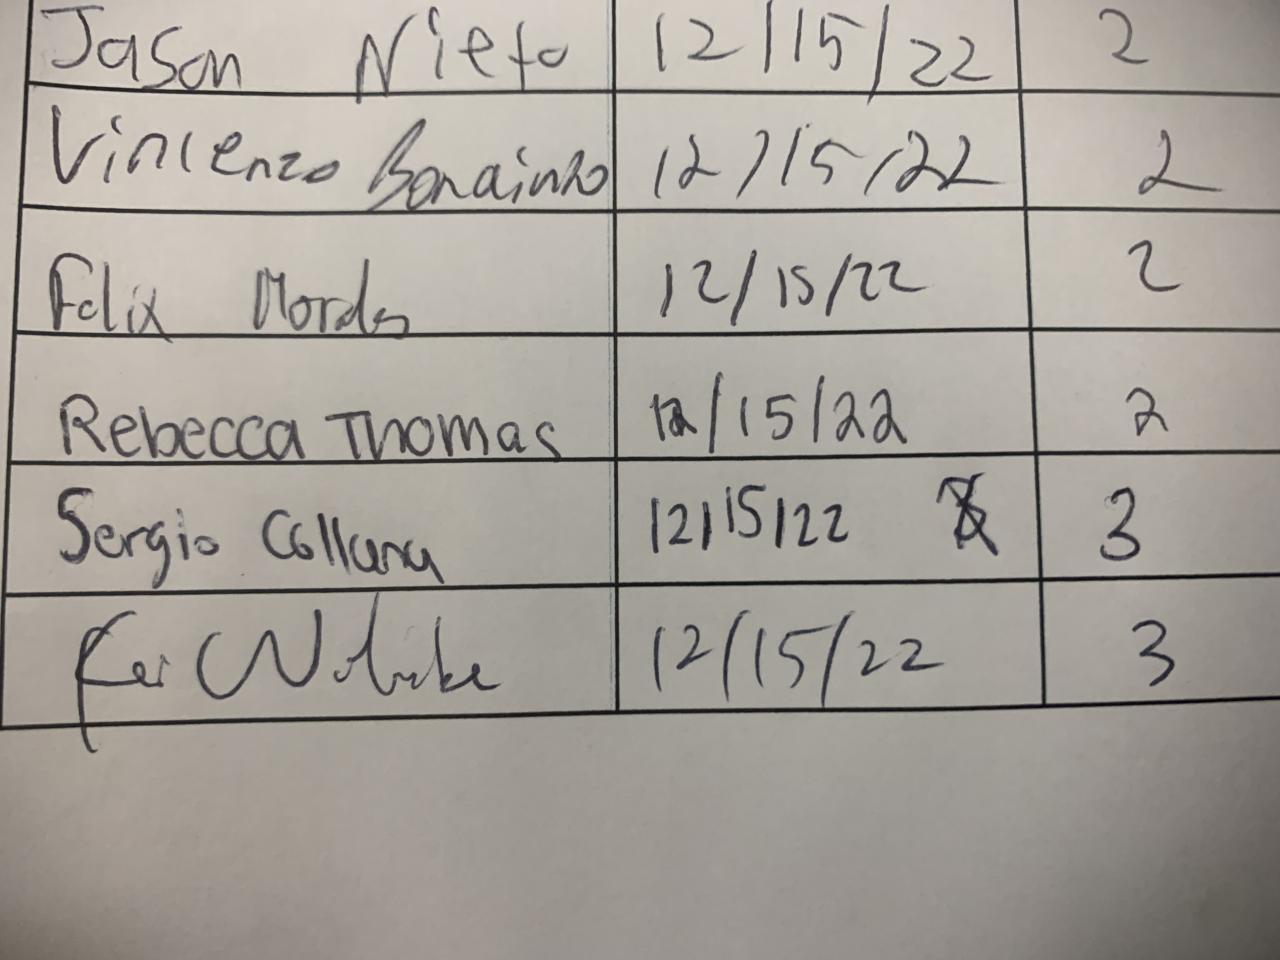 Jason Nieto 12/15/22 2
Vincenzo 12/15/22 2
Felix 12/15/22 2
Rebecca Thomas 12/15/22 2
Sergio 12/15/22 3
12/15/22 3